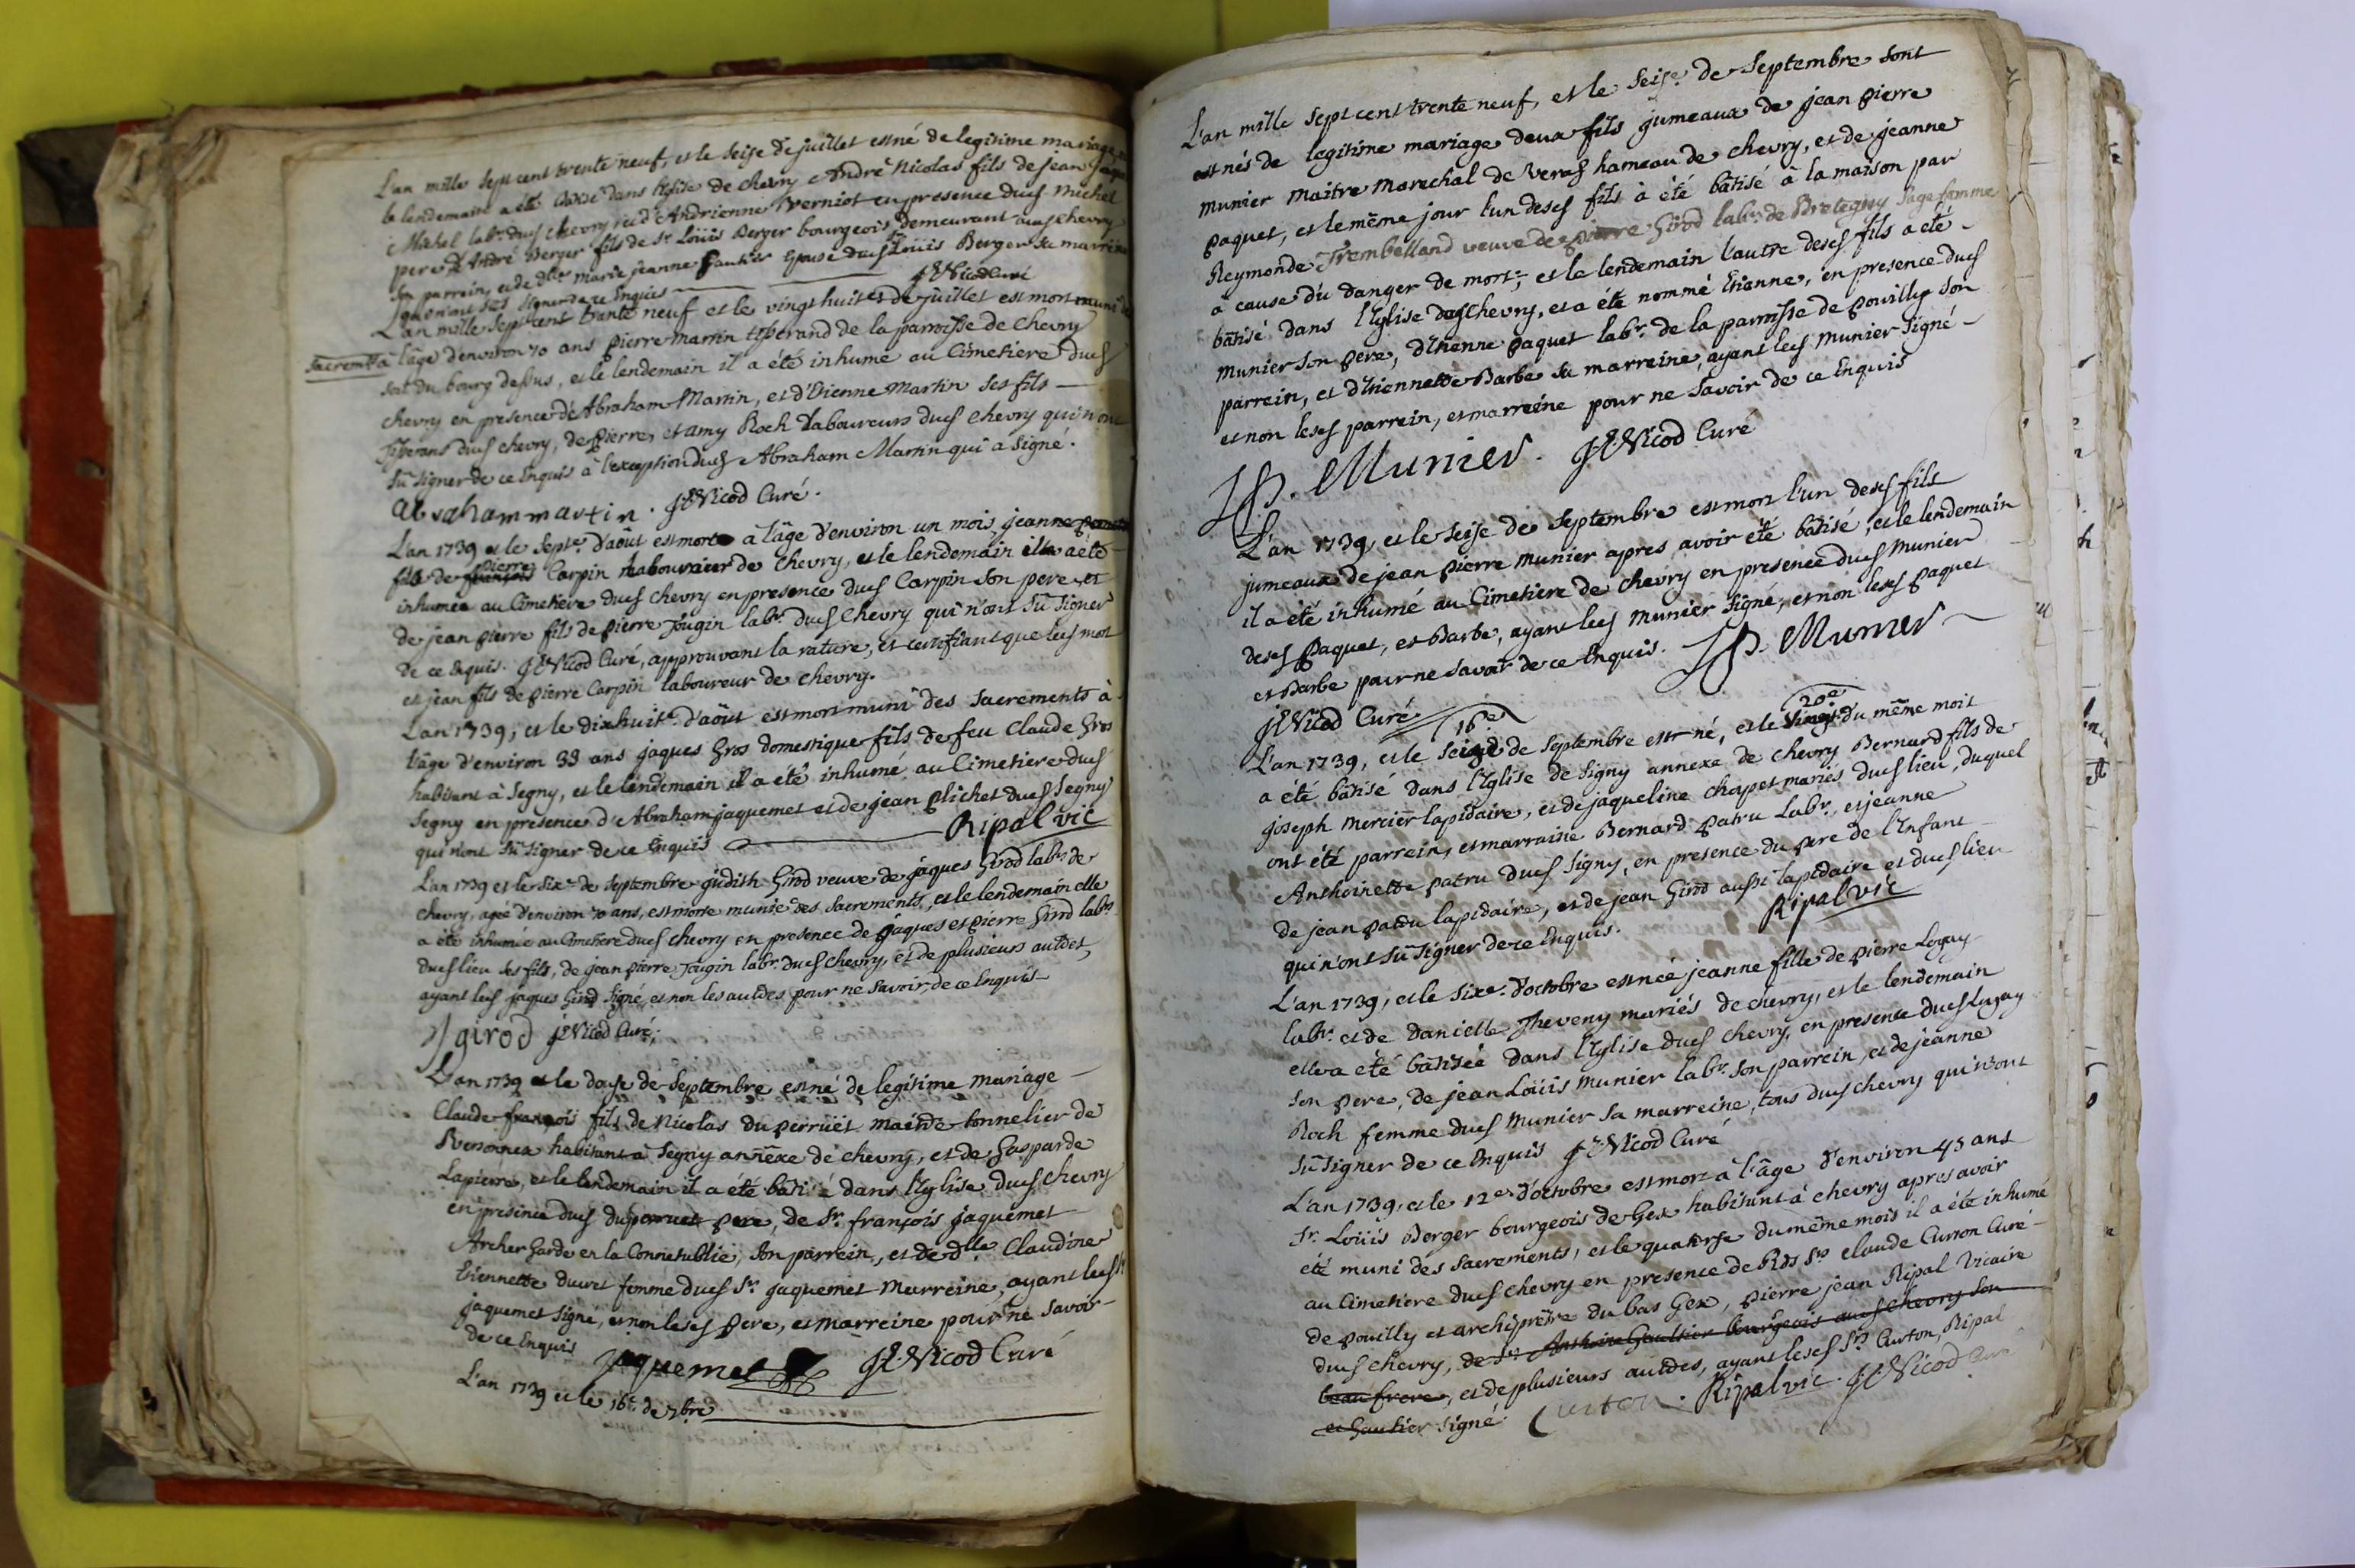 L'an mille sept cent trente neuf, et le seise de juillet est né de legitime mariage, et
le lendemain a été batisé dans l'Eglise de chevry André Nicolas fils de jean jaques
Michel labr. dud chevry, et d'Andrienne Verniot en presence dud Michel
pere d'André Berger fils de Sr. Loüis Berger bourgeois demeurant aud chevry
son parrein, et de dlle. Marie jeanne Gautier Epouse dud Sr. Loüis Berger sa marreine
qui n'ont sçu signer de ce Enquis J.C. Nicod Curé
L'an mille sept cent trante neuf et le vingt huit de juillet est mort muni des
sacremts. à l'âge d'environ 70 ans pierre Martin tisserand de la parroisse de chevry
dud chevry en presence d'Abraham Martin, et d'Etienne Martin ses fils
sat du bourg dessus, et le lendemain il a été inhumé au Cimetiere dud
Tisserans dud chevry, de pierre, et amy Roch Laboureurs dud chevry qui n'ont
sû signer de ce Enquis à l'exception dud Abraham Martin qui a signé.
Abraham martin. J.C. Nicod Curé.
L'an 1739 et le sept. d'août est mort à l'âge d'environ un mois jeanne
fils de françois pierre Carpin Laboureur de chevry, et le lendemain il a été
inhumé au Cimetiere dud chevry en presence dud Carpin son pere, et
de jean pierre fils de pierre Tougin labr. dud chevry qui n'ont sû signer
de ce Enquis. J.C. Nicod Curé, approuvant la rature, et certifiant que led mort
est jean fils de pierre Carpin laboureur de chevry.
L'an 1739, et le dixhuit. d'août est mort muni des sacrements à
l'âge d'environ 33 ans jaques Gros domestique fils de feu Claude Gros
habitant à Segny, et le lendemain il a été inhumé au Cimetiere dud
Segny en presence d'Abraham jaquemet et de jean plichet dud Segny
qui n'ont sû signer de ce Enquis Ripal vic
L'an 1739 et le six. de septembre judith Girod veuve de jaques Girod labr. de
chevry, agée d'environ 70 ans, est morte munie des sacrements, et le lendemain elle
a été inhumée au Cimetiere dud chevry en presence de jaques et pierre Girod labrs
dud lieu ses fils, de jean pierre Tougin labr. dud chevry, et de plusieurs autres,
ayant led jaques Girod signé, et non les autres pour ne savoir, de ce Enquis
J girod J.C. Nicod Curé.
L'an 1739 et le dose de Septembre est né de legitime mariage
Claude françois fils de Nicolas du perruët maitre tonnelier de
habitant à Segny annêxe de chevry, et de Gasparde
Lapierre, et le lendemain il a été batisé dans l'Eglise dud chevry
en presence dud duperruet pere, de Sr. françois jaquemet
Archer Garde en la Connetablie, son parrein, et de dlle Claudine
Etiennette duvet femme dud Sr. jaquemet marreine, ayant led Sr
jaquemet signé, et non lesd pere, et marreine pour ne savoir
de ce Enquis jaquemet J.C. Nicod Curé
L'an 1739 et le 16e. de 7bre
L'an mille sept cent trente neuf, et le seise. de Septembre sont
est nés de legitime mariage deux fils jumeaux de jean pierre
munier maitre Marechal de Veras hameau de chevry, et de jeanne
paquet, et le même jour l'un desd fils à été bâtisé à la maison par
Reymonde Trembelland veuve de pierre Girod labr. de Bretegny sage femme
à cause d'u danger de mort, et le lendemain l'autre desd fils a été
bâtisé dans l'Eglise dud chevry, et a été nommé Etienne, en presence dud
munier son pere, d'Etienne paquet labr. de la parroisse de pouilly son
parrein, et d'Etiennette Barbe sa marreine, ayant led munier signé
et non lesd parrein, et marreine pour ne savoir de ce Enquis
JP. Munier. J.C. Nicod Curé
L'an 1739, et le seise de septembre est mort l'un desd fils
jumeaux de jean pierre munier apres avoir été batisé, et le lendemain
il a été inhumé au Cimetiere de chevry en presence dud Munier
desd paquet, et Barbe, ayant led munier signé, et non lesd paquet
et Barbe pour ne savoir de ce Enquis. JP. Munier
J.C. Nicod Curé
L'an 1739, et le seize 16e de septembre est né, et le vingt 20e du même mois
a été batisé dans l'Eglise de Signy annexe de chevry Bernard fils de
joseph Mercier lapidaire, et de jaqueline chapet mariés dud lieu, duquel
ont été parrein, et marraine Bernard patru Labr. et jeanne
Anthoinette patru dud Signy, en presence du pere de l'Enfant
de jean patru lapidaire, et de jean Girod aussi lapidaire et dud lieu
qui n'ont sû signer de ce Enquis. Ripal vic
L'an 1739, et le sixe. d'octobre est née jeanne fille de pierre Logay
labr. et de Danielle Theveny mariés de chevry, et le lendemain
elle a été batisée dans l'Eglise dud chevry, en presence dud Lugay
son pere, de jean Loüis Munier labr. son parrein, et de jeanne
Roch femme dud Munier sa marreine, tous dud chevry qui n'ont
sû signer de ce Enquis J.C. Nicod Curé
L'an 1739, et le 12e. d'octobre est mort à l'âge d'environ 45 ans
Sr. Loüis Berger bourgeois de Gex habitant à chevry apres avoir
été muni des sacrements, et le quatorse du même mois il a été inhumé
au Cimetiere dud chevry en presence de Rds Srs Claude Curton Curé
de pouilly et archiprêtre du bas Gex, pierre jean Ripal Vicaire
dud chevry, de Sr. Anthoine Gaultier bourgeois aud chevry son
beau frere, et de plusieurs autres, ayant lesd Srs Curton, Ripal
et Gautier signé. Curton. Ripal vic. J.C. Nicod Curé